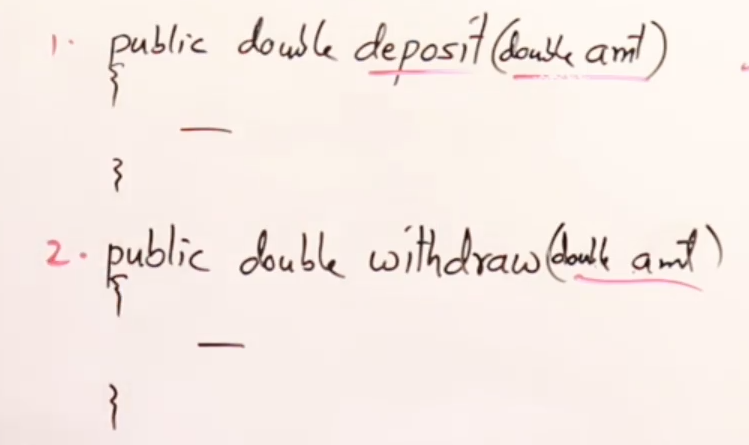 1. public double deposit(double amt)
{
—
}
2. public double withdraw(double amt)
{
—
}